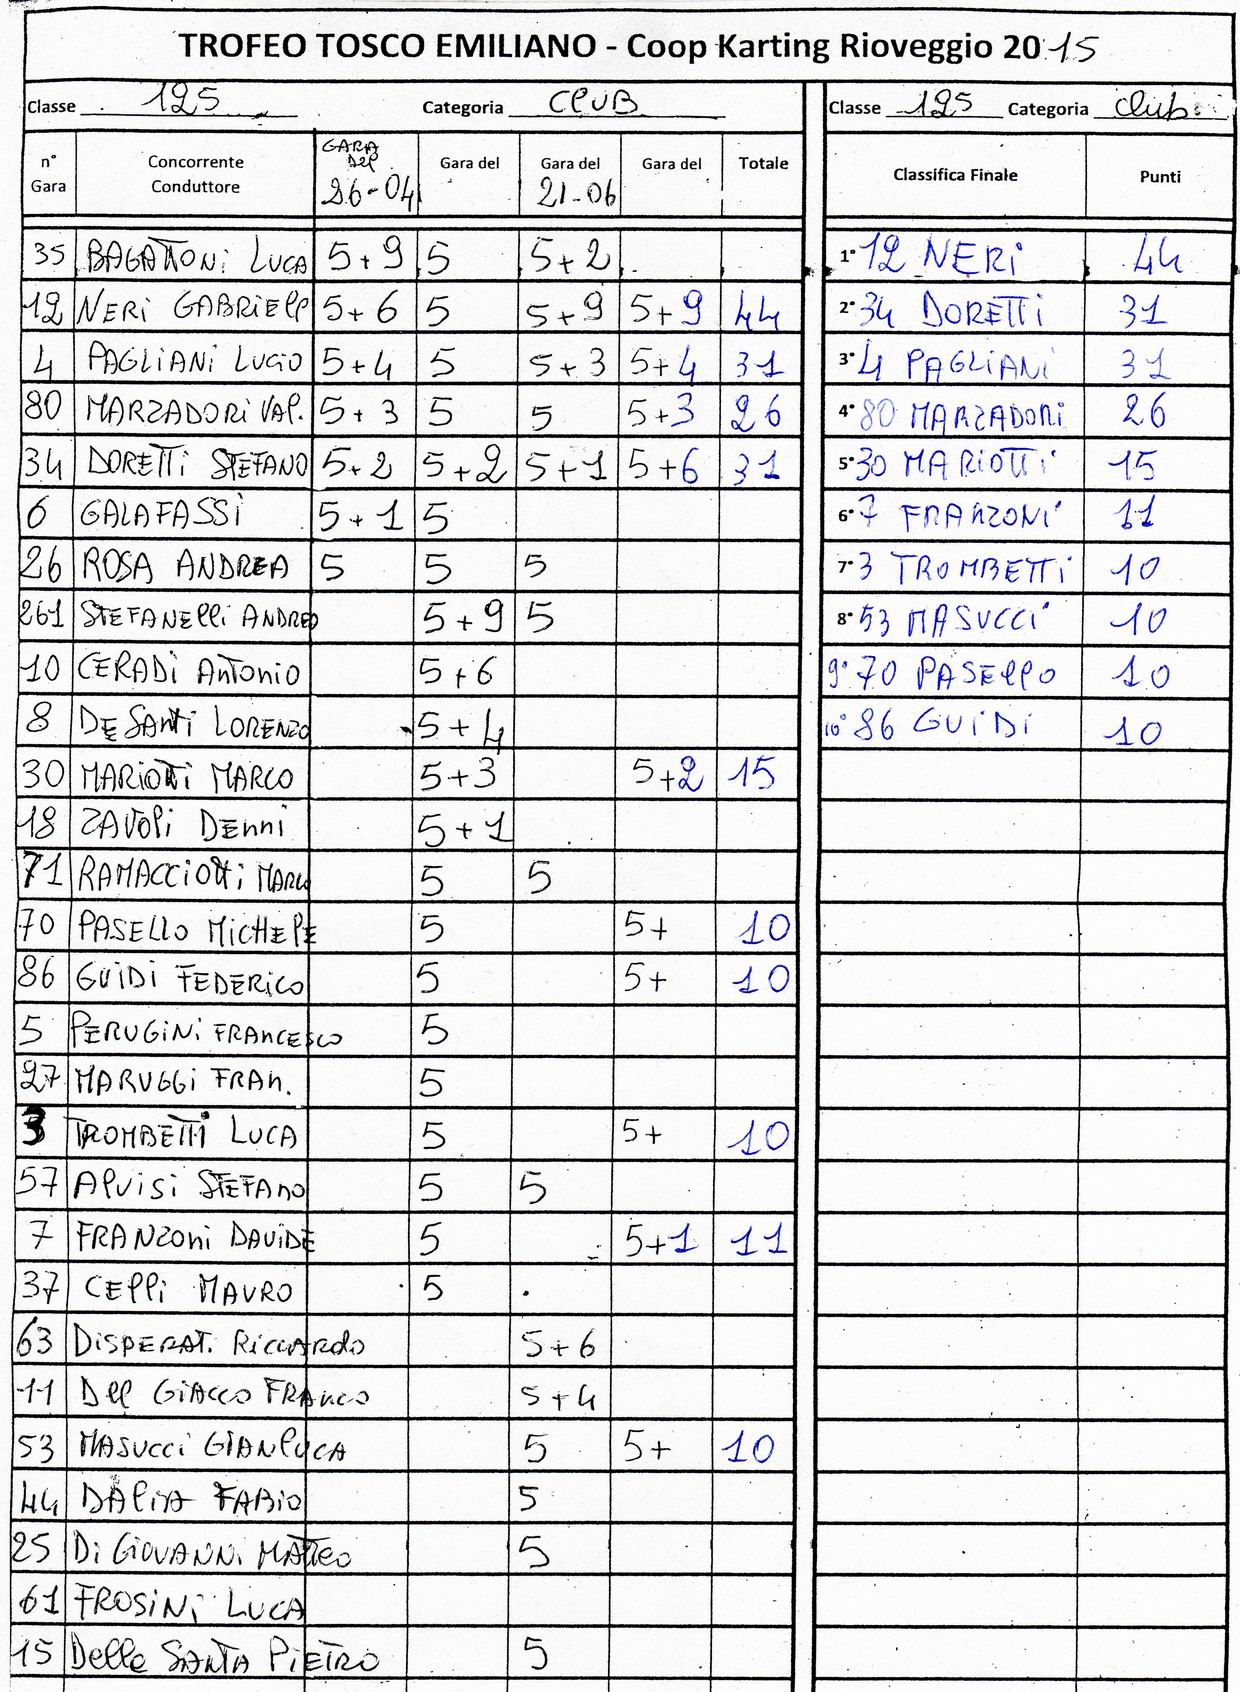 TROFEO TOSCO EMILIANO - Coop Karting Rioveggio 2015
Classe 125 Categoria CLUB
n° Gara Concorrente Conduttore GARA Del 26-04 Gara del Gara del 21-06 Gara del Totale
35 BAGATTONi LUCA 5+9 5 5+2
12 NERi GABRIELL 5+6 5 5+9 5+9 44
4 PAGLIANi LUCIO 5+4 5 5+3 5+4 31
80 MARZADORi VAL. 5+3 5 5 5+3 26
34 DORETTi STEFANO 5+2 5+2 5+1 5+6 31
6 GALAFASSi 5+1 5
26 ROSA ANDREA 5 5 5
261 STEFANELLi ANDREA 5+9 5
10 CERADi AnTonio 5+6
8 DE SANTi LORENZO 5+4
30 MARiOTTi MARCO 5+3 5+2 15
18 ZAVOLi DEnni 5+1
71 RAMACCiOTTi MARCO 5 5
70 PASELLO MiCHELE 5 5+ 10
86 GUiDi FEDERiCO 5 5+ 10
5 PERUGiNi FRAnCESCO 5
27 MARUGGi FRAn. 5
3 TROMBETTi LUCA 5 5+ 10
57 ALViSi STEFAnO 5 5
7 FRANZOni DAViDE 5 5+1 11
37 CELLi MAURO 5
63 DiSPERAT. RiCCARDO 5+6
11 DEL GiACCO FRANCO 5+4
53 MASUCCi GIANLUCA 5 5+ 10
44 DALIA FABiO 5
25 Di GiOVANNi MATTEO 5
61 FROSiNi LUCA
15 DELLE SANTA PiETRO 5
Classe 125 Categoria Club
Classifica Finale Punti
1° 12 NERi 44
2° 34 DORETTi 31
3° 4 PAGLiANi 31
4° 80 MARZADORi 26
5° 30 MARiOTTi 15
6° 7 FRANZONi 11
7° 3 TROMBETTi 10
8° 53 MASUCCi 10
9° 70 PASELLO 10
10° 86 GUiDi 10